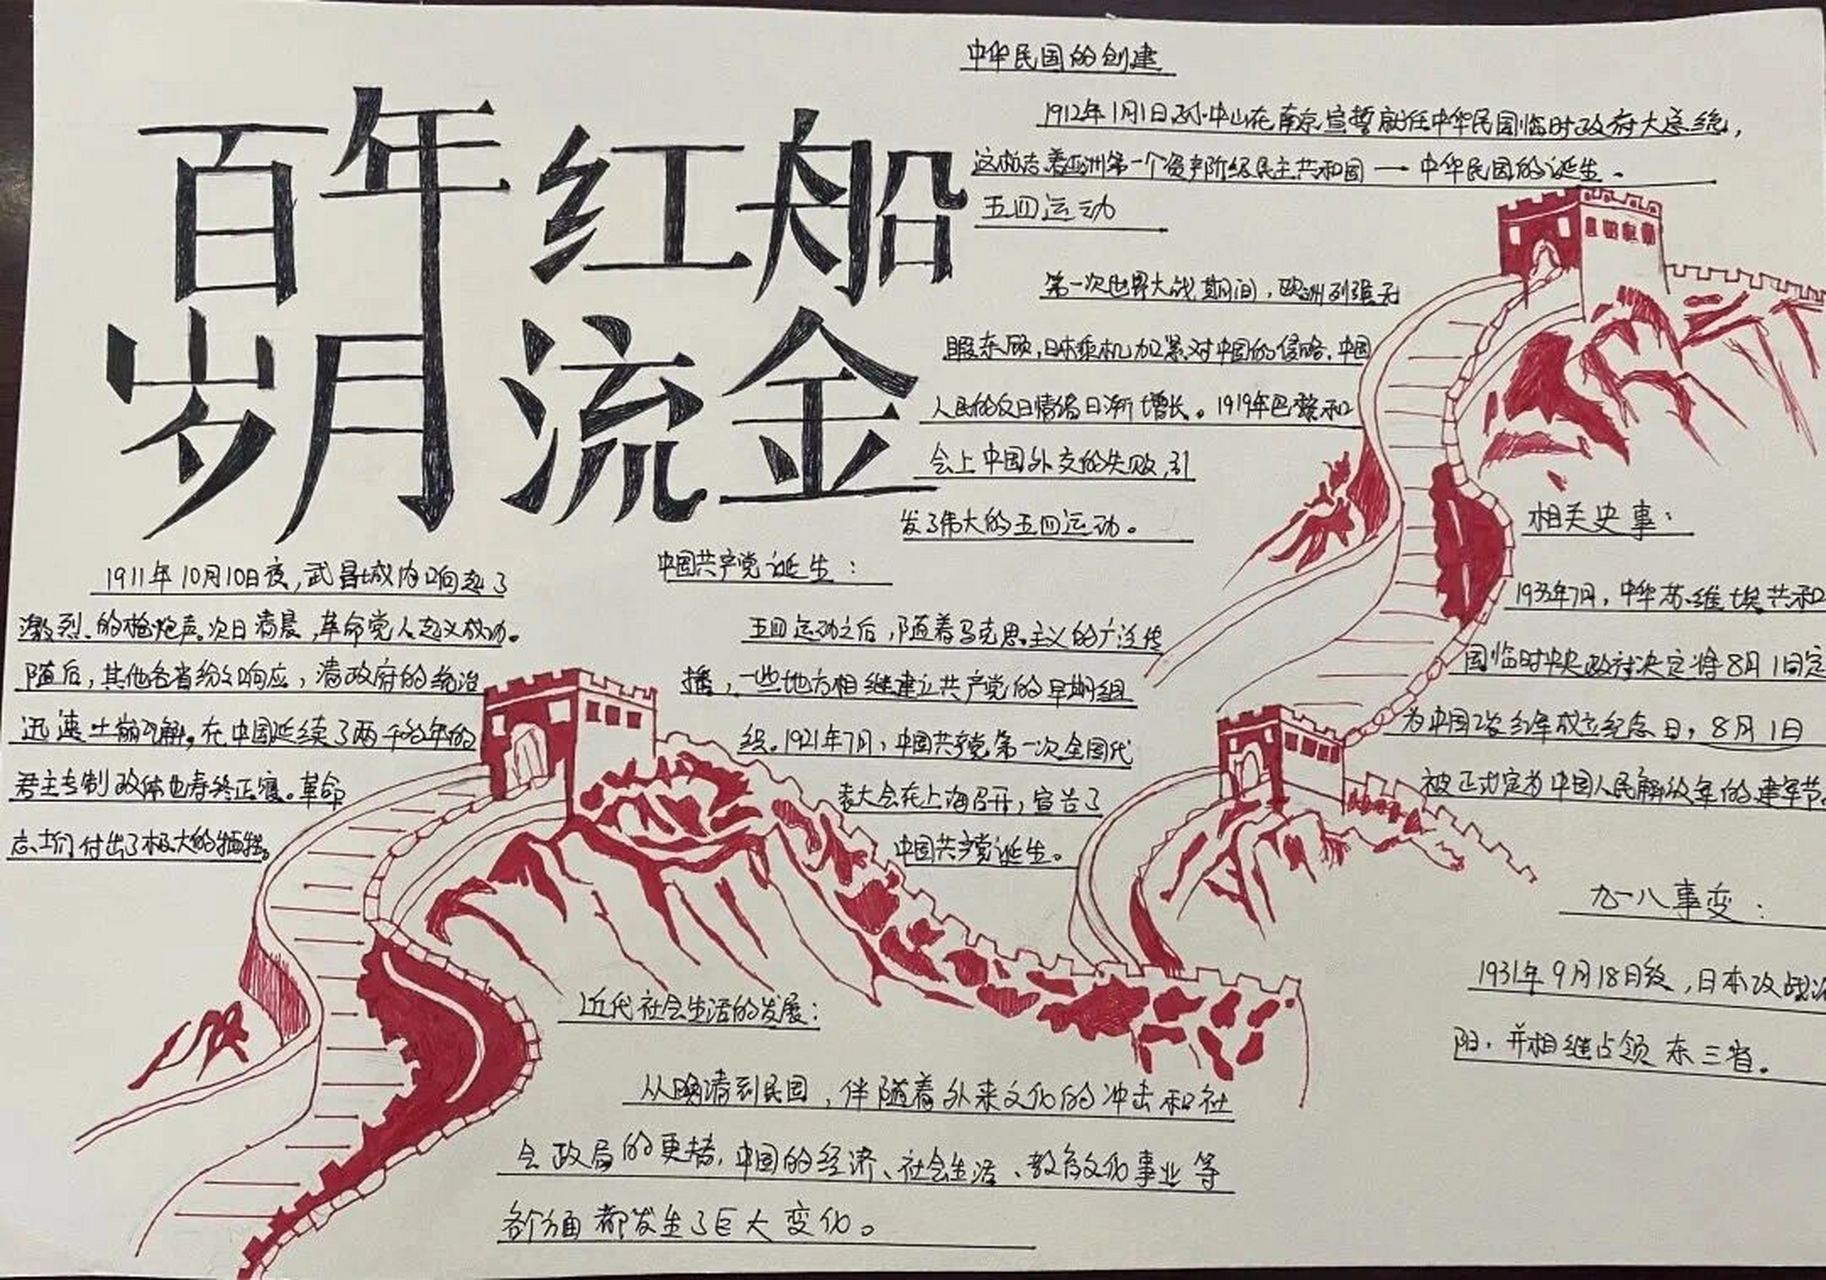 百年红船
岁月流金
中华民国的创建
1912年1月1日孙中山在南京宣誓就任中华民国临时政府大总统,
这标志着亚洲第一个资产阶级民主共和国一中华民国的诞生。
五四运动
第一次世界大战期间,欧洲列强无
暇东顾,日本乘机加紧对中国的侵略,中国
人民的反日情绪日渐增长。1919年巴黎和
会上中国外交的失败,引
发了伟大的五四运动。
1911年10月10日夜,武昌城内响起了
激烈的枪炮声。次日清晨,革命党人起义成功。
随后,其他各省纷纷响应,清政府的统治
迅速土崩瓦解。在中国延续了两千余年的
君主专制政体也寿终正寝。革命
志士们付出了极大的牺牲。
中国共产党诞生:
五四运动之后,随着马克思主义的广泛传
播,一些地方相继建立共产党的早期组
织。1921年7月,中国共产党第一次全国代
表大会在上海召开,宣告了
中国共产党诞生。
近代社会生活的发展:
从晚清到民国,伴随着外来文化的冲击和社
会政局的更替,中国的经济、社会生活、教育文化事业等
各个方面都发生了巨大变化。
相关史事:
1933年7月,中华苏维埃共和
国临时中央政府决定将8月1日定
为中国工农红军成立纪念日,8月1日
被正式定为中国人民解放军的建军节。
九一八事变:
1931年9月18日夜,日本攻战沈
阳,并相继占领东三省。